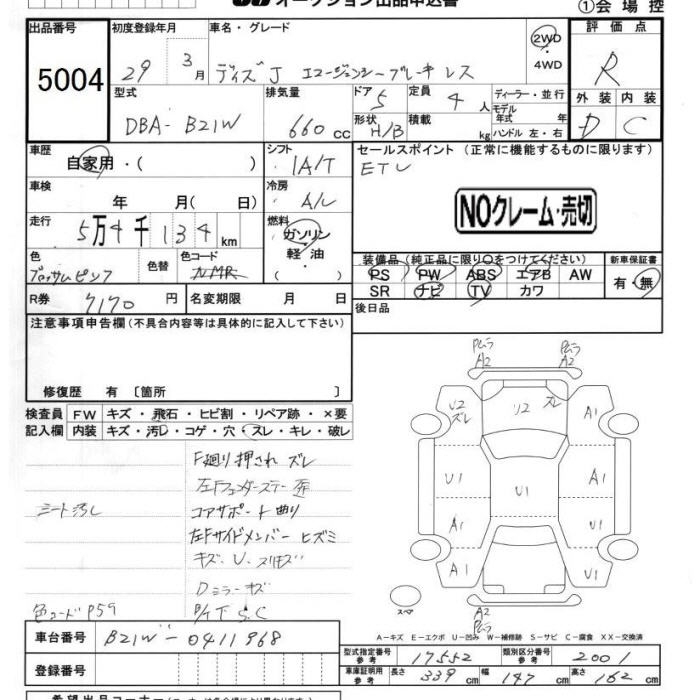 オークション出品申込書
①会場控
出品番号 5004
初度登録年月 29 3月
車名・グレード ディズ J エマージェンシーブレーキ レス
2WD・4WD
評価点 R
外装 D 内装 C
型式 DBA-B21W
排気量 660cc
ドア 5 定員 4人
形状 H/B 積載 kg
ディーラー・並行
モデル年式 年
ハンドル 左・右
車歴 自家用・( )
シフト IA/T
セールスポイント (正常に機能するものに限ります)
ETC
車検 年 月( 日)
冷房 A/C
NOクレーム・売切
走行 5万4千134km
燃料 ガソリン・軽油 ( )
色 ブロッサムピンク 色替 色コード
装備品 (純正品に限り○をつけてください)
PS PW ABS エアB AW
SR ナビ TV カワ
新車保証書 有・無
R券 7170円
名変期限 月 日
後日品
注意事項申告欄 (不具合内容等は具体的に記入して下さい)
修復歴 有 〔箇所 〕
検査員記入欄
FW キズ・飛石・ヒビ割・リペア跡・×要
内装 キズ・汚レ・コゲ・穴・スレ・キレ・破レ
F廻り押され ズレ
左Fフェンダーステー歪
シート汚レ コアサポート曲り
左Fサイドメンバー ヒズミ
キズ・U・スリキズ
Dミラーキズ
色コードP59 P/T下S.C
PムラA2 PムラA2
U2ズレ U2 ズレ A1
U1 U1 A1
A1 U1
A1 U1
スペア
A2
Pムラ
A-キズ E-エクボ U-凹み W-補修跡 S-サビ C-腐食 XX-交換済
車台番号 B21W-0411968
型式指定番号 参考 17552 類別区分番号 参考 2001
登録番号
車庫証明用 参考 長さ 339cm 幅 147cm 高さ 162cm